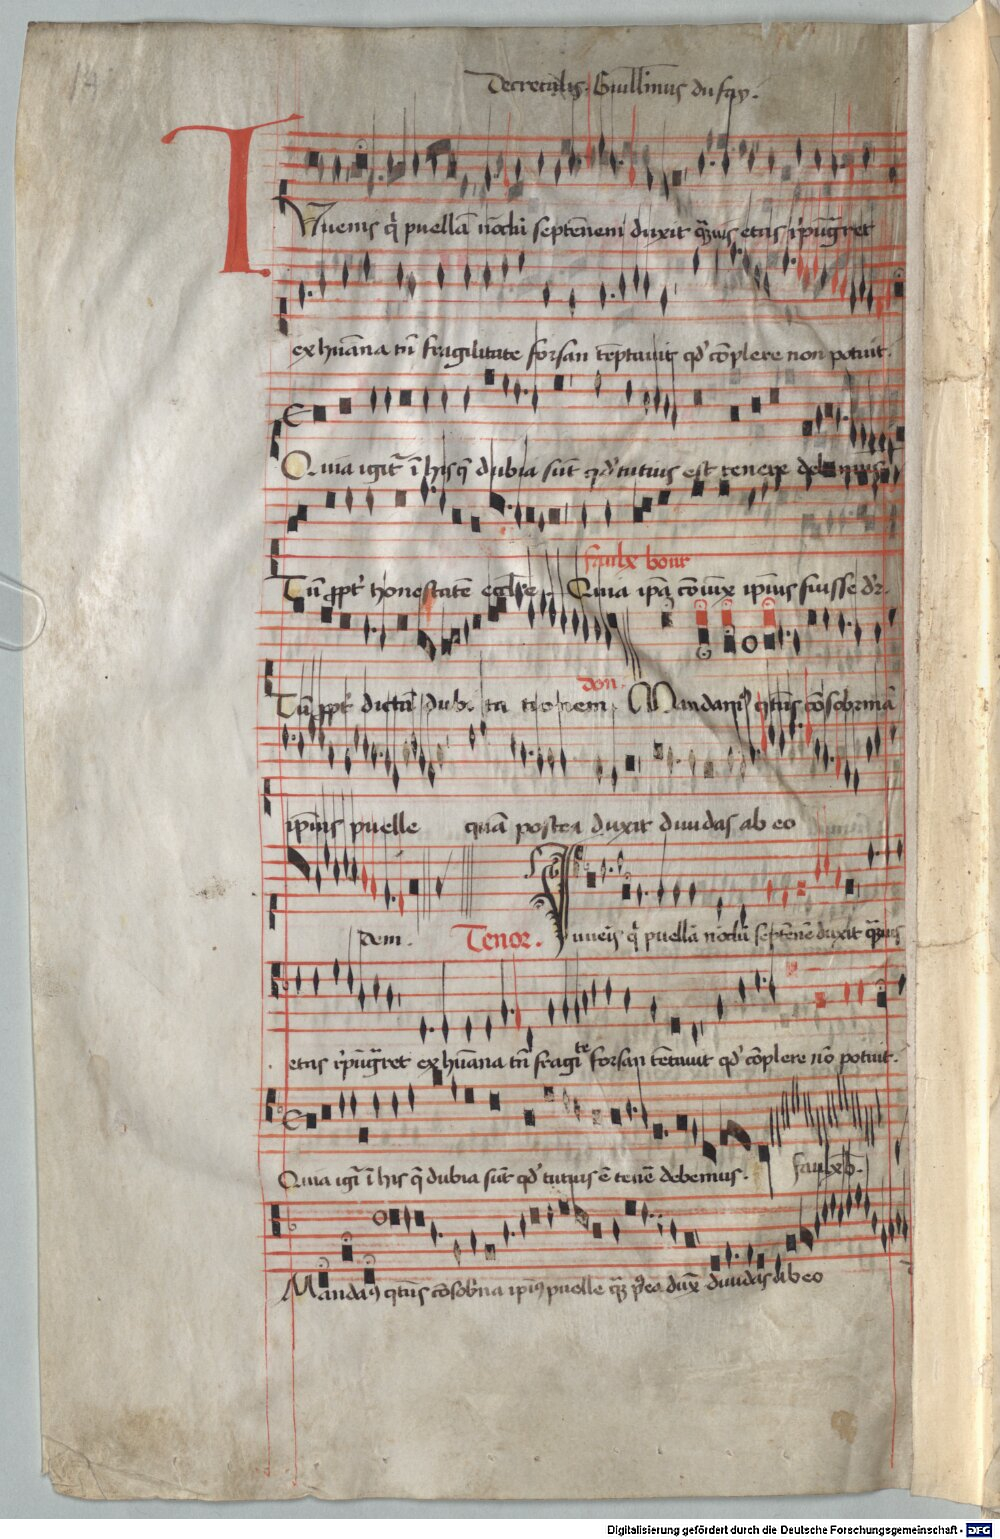 14
Decretalis. Guillīnus dufay.
I
Vuenis q̄ puellā nōdū septēnem duxit q̄uis etas rēpūgret
ex hūana tn̄ fragilitate forsan tēptauit qd' cōplere non potuit.
Quia igit̄ ī hisq̄ dubia sūt qd' tutius est tenere debemus
Tū ppt' honestatē eccl̄ie.
faulx bour
Quia ipā cōiux ipīus fuisse d'r.
Tū ppt' dictā dub. ta tionem.
don.
Mandamꝰ qtūs cōsobrinā
ipīus puelle quā postea duxit diuidas ab eo
dem.
Tenor.
Iuueis q̄ puellā nōdū septēnē duxit q̄uis
etas rēpūgret ex hūana tn̄ fragite forsan tētauit qd' cōplere nō potuit.
Quia igr̄ ī his q̄ dubia sūt qd' tutius ē tenē debemus.
faulxb.
Mandaꝰ qtūs cōsobrīa ipiꝰ puelle duxꝰ diuidas ab eo
Digitalisierung gefördert durch die Deutsche Forschungsgemeinschaft - DFG